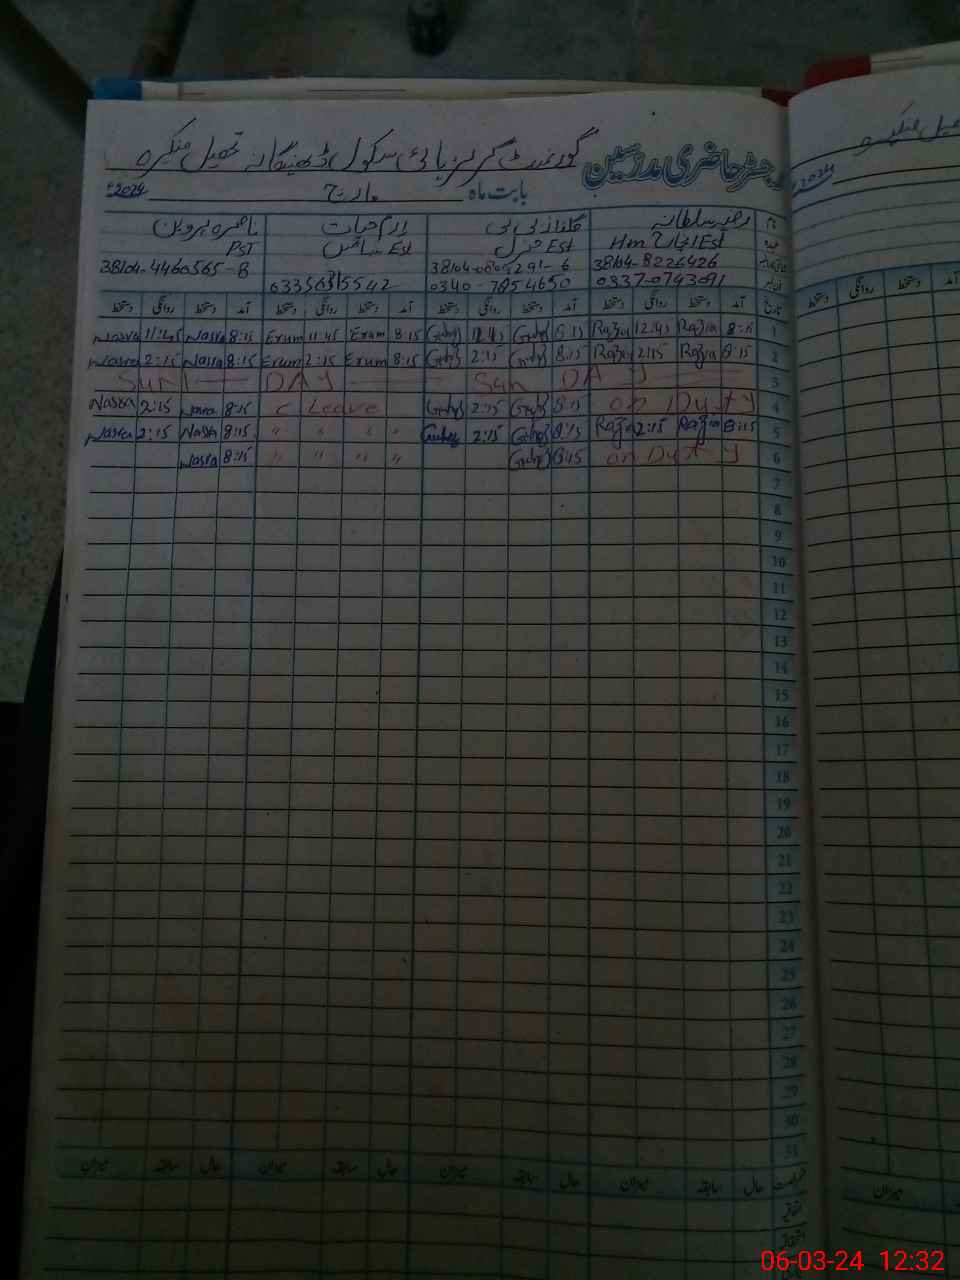 رجسٹر حاضری مدرسین گورنمنٹ گرلز ہائی سکول ڈھینگانہ تحصیل منکیرہ
بابت ماہ مارچ 2024ء
نام رضیہ سلطانہ گلناز بی بی ارم حیات ناصرہ پروین
عہدہ Est انچارج Hm Est جنرل Est سائنس PST
38104-8226426 38104-4460565-8
0337-0743091 0340-7854650 03356315542
تاریخ آمد دستخط روانگی دستخط آمد دستخط روانگی دستخط آمد دستخط روانگی دستخط آمد دستخط روانگی دستخط
1 8:15 Razia 12:45 Razia 8:15 12:45 8:15 Erum 11:45 Erum 8:15 Nasra 11:45 Nasra
2 8:15 Razia 2:15 Razia 8:15 2:15 8:15 Erum 2:15 Erum 8:15 Nasra 2:15 Nasra
3 Sun DAY Sun DAY
4 on Duty 8:15 2:15 C Leave 8:15 Nasra 2:15 Nasra
5 8:15 Razia 2:15 Razia 8:15 2:15 " " " " 8:15 Nasra 2:15 Nasra
6 on Duty 8:15 " " " " 8:15 Nasra
7
8
9
10
11
12
13
14
15
16
17
18
19
20
21
22
23
24
25
26
27
28
29
30
31
حال سابقہ میزان حال سابقہ میزان حال سابقہ میزان حال سابقہ میزان
اتفاقیہ
استحقاقیہ
2024
میزان
06-03-24 12:32